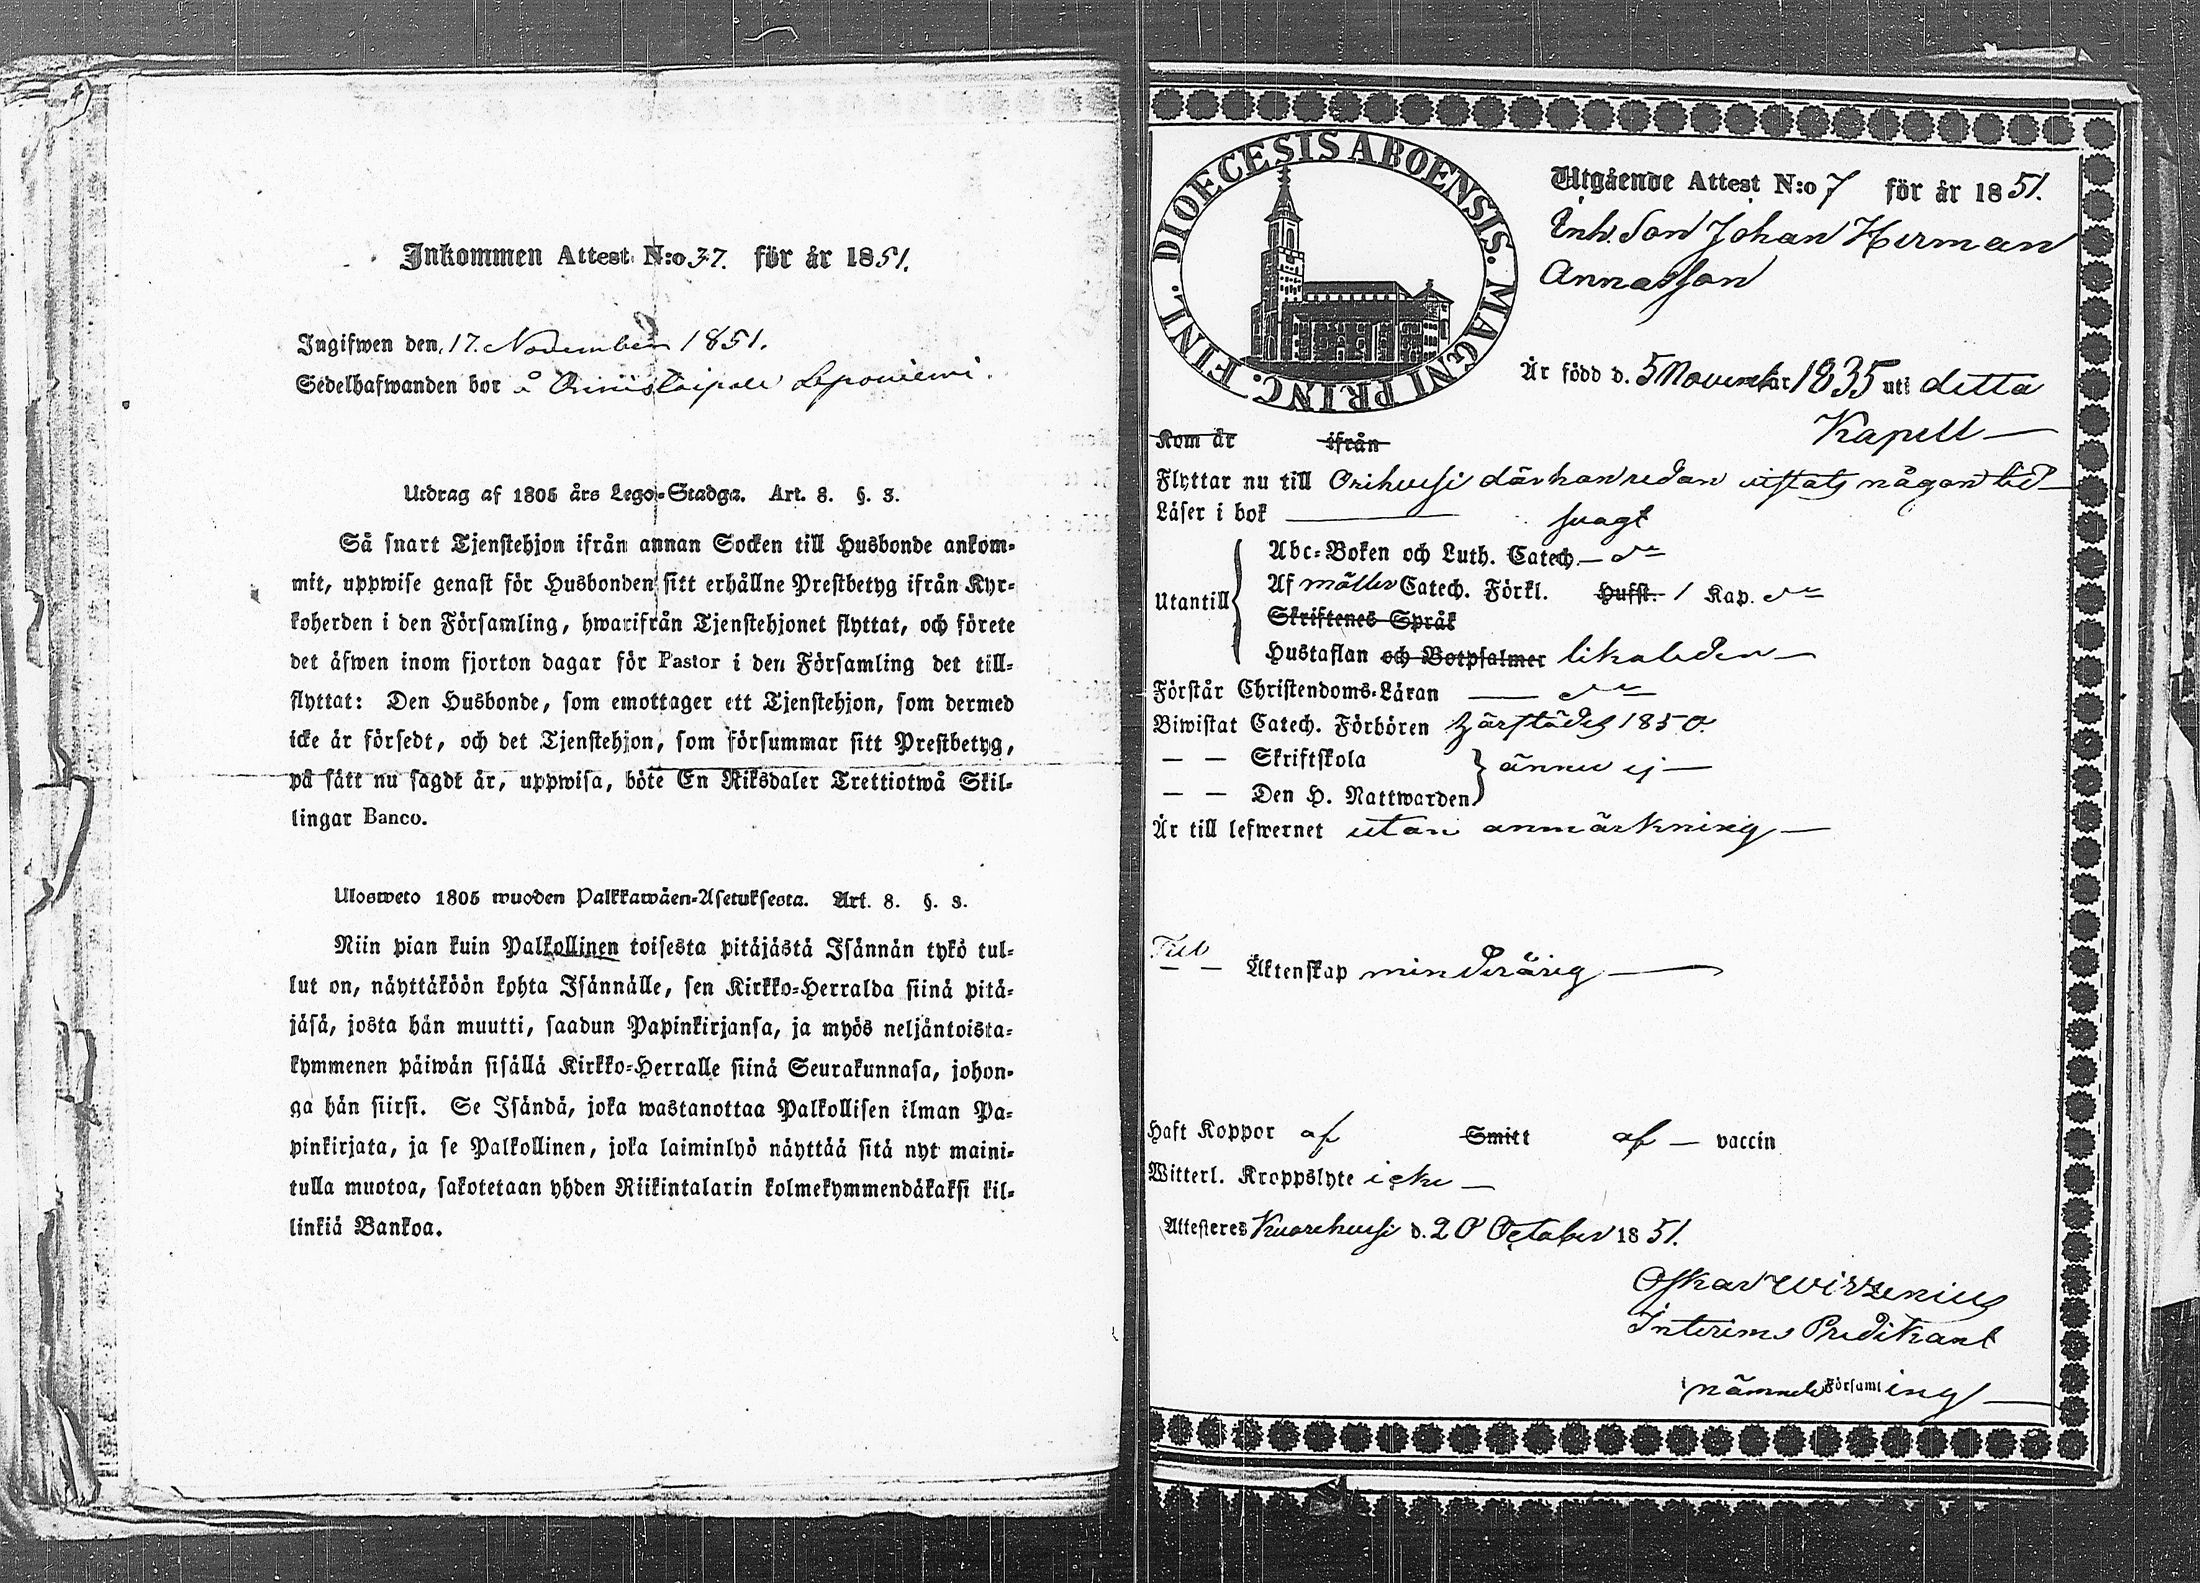 Inkommen Attest N:o 37. för år 1851.
Ingifwen den 17. November 1851.
Sedelhafwanden bor å Leponiemi.
Utdrag af 1805 års Lego-Stadga. Art. 8. §. 3.
Så snart Tjenstehjon ifrån annan Socken till Husbonde ankom-
mit, uppwise genast för Husbonden sitt erhållne Prestbetyg ifrån Kyr-
koherden i den Församling, hwarifrån Tjenstehjonet flyttat, och förete
det äfwen inom fjorton dagar för Pastor i den Församling det till-
flyttat: Den Husbonde, som emottager ett Tjenstehjon, som dermed
icke är försedt, och det Tjenstehjon, som försummar sitt Prestbetyg,
på sätt nu sagdt är, uppwisa, böte En Riksdaler Trettiotwå Skil-
lingar Banco.
Ulosweto 1805 wuoden Palkkawäen-Asetuksesta. Art. 8. §. 3.
Niin pian kuin Palkollinen toisesta pitäjästä Isännän tykö tul-
lut on, näyttäköön kohta Isännälle, sen Kirkko-Herralda siinä pitä-
jäsä, josta hän muutti, saadun Papinkirjansa, ja myös neljäntoista-
kymmenen päiwän sisällä Kirkko-Herralle siinä Seurakunnasa, johon-
ga hän siirsi. Se Isändä, joka wastanottaa Palkollisen ilman Pa-
pinkirjata, ja se Palkollinen, joka laiminlyö näyttää sitä nyt maini-
tulla muotoa, sakotetaan yhden Riikintalarin kolmekymmendäkaksi kil-
linkiä Bankoa.
DIOECESIS ABOENSIS. MAGNI PRINC. FINL.
Utgående Attest N:o 7 för år 1851.
Inh. Son Johan Herman
Annasson
Är född d. 5 Novemb. år 1835 uti detta
Kapell
Kom år ifrån
Flyttar nu till Orihvesi där han redan vistats någon tid
Läser i bok svagt
Abc-Boken och Luth. Catech. do
Utantill Af möller Catech. Förkl. Husst. 1 Kap. do
Skriftenes Språk
Hustaflan och Botpsalmer likaleden
Förstår Christendoms-Läran do
Biwistat Catech. Förhören härstädes 1850.
— — Skriftskola ännu ej
— — Den H. Nattwarden
Är till lefwernet utan anmärkning
Till
— — Äktenskap minderårig
Haft Koppor af Smitt af vaccin
Witterl. Kroppslyte icke
Attesteres Kuorehvesi d. 20 October 1851.
Oskar Wirzenius
Interims Predikant
i nämnde Församling